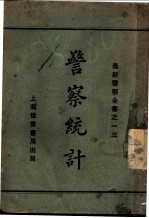 最新警察全書之一三
警察統計
上海世界書局出版